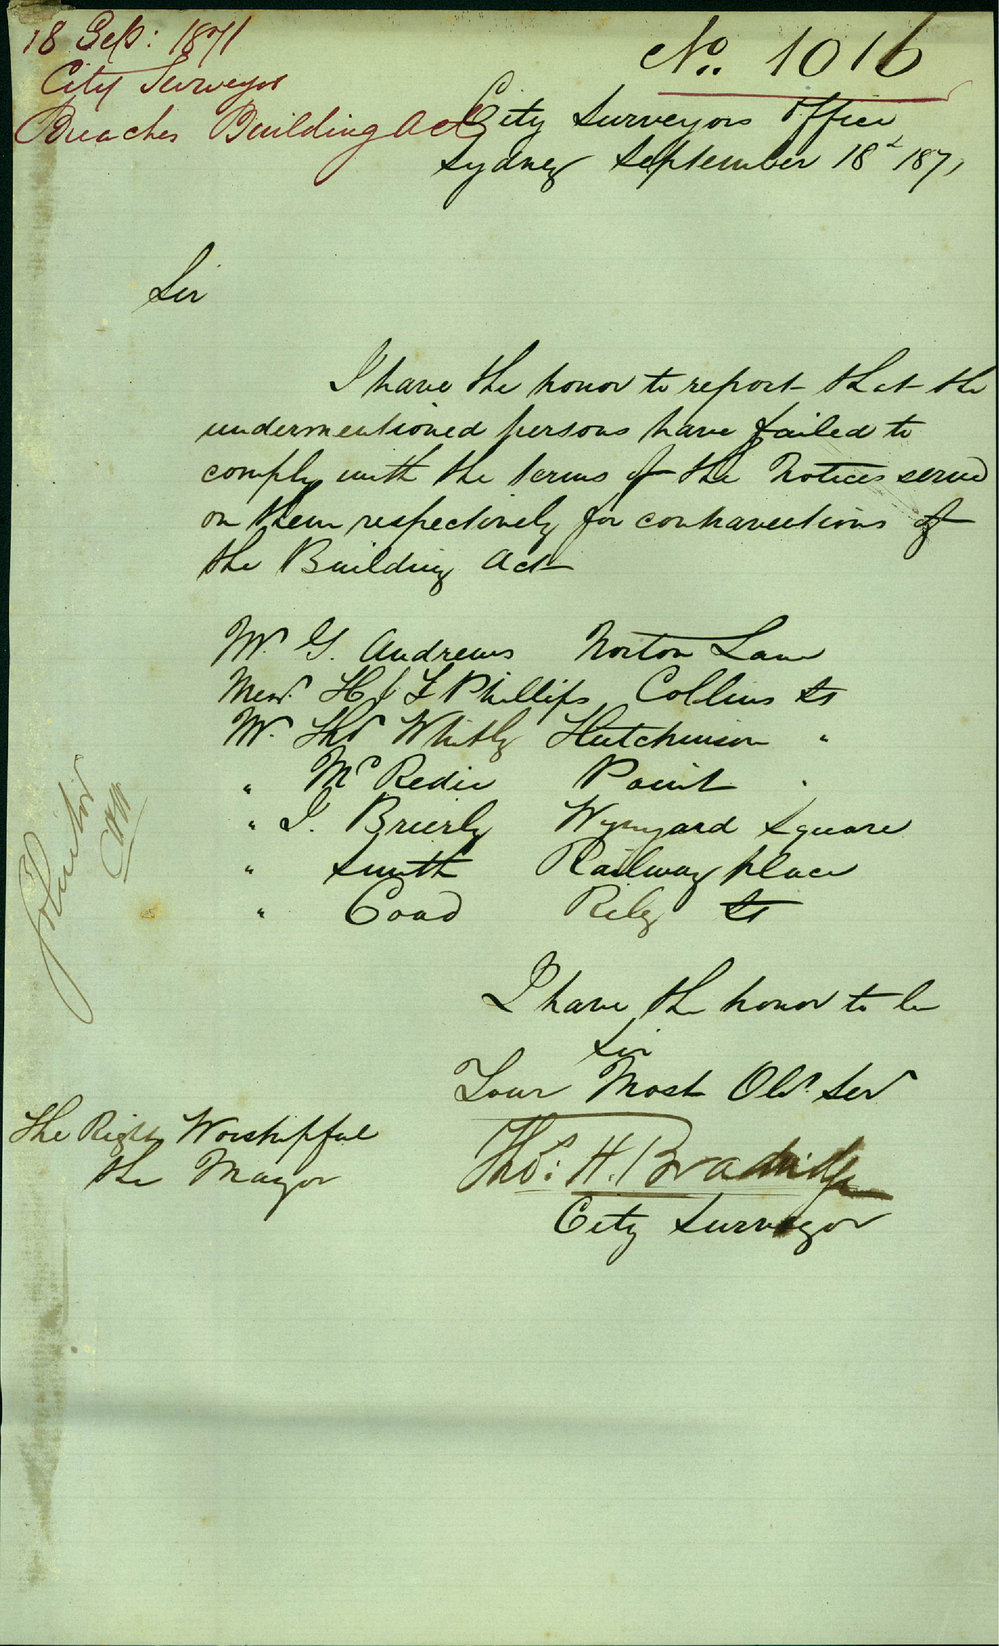 18 Sep: 1871
City Surveyor
Breaches Building Act
No. 1016
City Surveyors Office
Sydney September 18th 1871
Sir
I have the honor to report that the
undermentioned persons have failed to
comply with the terms of the Notices served
on them respectively for contraventions of
the Building Act
Mr. G. Andrews Norton Lane
Messrs H & F Phillips Collins St
Mr. Thos Whitly Hutchinson "
" McRedie Point "
" J. Brierly Wynyard Square
" Smith Railway place
" Coad Riley St
Solicitor
I have the honor to be
Sir
Your Most Obt. Ser
The Right Worshipful
the Mayor
Thos: H. Bradridge
City Surveyor